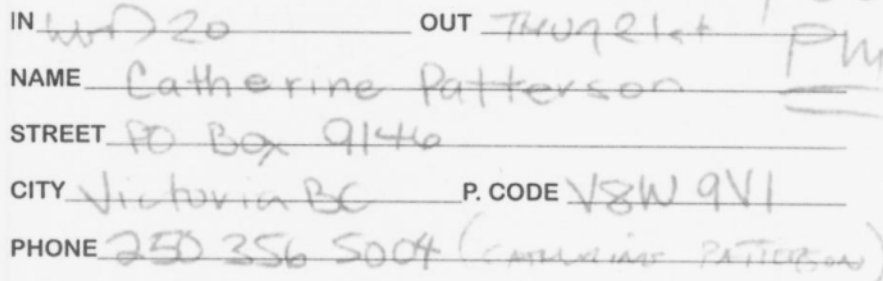 IN Wed 20 OUT Thur 21st PM
NAME Catherine Patterson
STREET PO Box 9146
CITY Victoria BC P. CODE V8W 9V1
PHONE 250 356 5004 (CATHERINE PATTERSON)